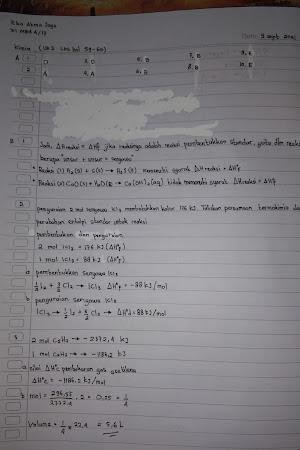 XI MIPA 4/17
Kimia (UKS LKS hal 59-60)
A 1 D 3. D 5. B 7. B
2 A 4. A 6. D 8. B 10. E
B 1 Jadi, ΔH reaksi = ΔHf jika reaksinya adalah reaksi pembentukan standar, yaitu jika
berupa "unsur + unsur → senyawa"
• Reaksi (1) H₂(g) + S(s) → H₂S(g) memenuhi syarat ΔH reaksi = ΔHf
• Reaksi (2) CaO(s) + H₂O(l) → Ca(OH)₂(aq) tidak memenuhi syarat ΔH reaksi = ΔHf
2. penguraian 2 mol senyawa ICl₃ membutuhkan kalor 176 kJ. Tuliskan persamaan termokimia dan
perubahan entalpi standar untuk reaksi
pembentukan dan penguraian
2 mol ICl₃ = 176 kJ (ΔH°f)
1 mol ICl₃ = 88 kJ (ΔH°f)
a pembentukkan senyawa ICl₃
½ I₂ + 3/2 Cl₂ → ICl₃ ΔH°f = -88 kJ/mol
b penguraian senyawa ICl₃
ICl₃ → ½ I₂ + 3/2 Cl₂ → ΔH°d = 88 kJ/mol
3 2 mol C₂H₂ → - 2372,4 kJ
1 mol C₂H₂ → - 1186,2 kJ
a nilai ΔH°c pembakaran gas asetilena
ΔH°c = -1186,2 kJ/mol
b mol = 296,55/2372,4 . 2 = 0,25 = 1/4
Volume = 1/4 × 22,4 = 5,6 L